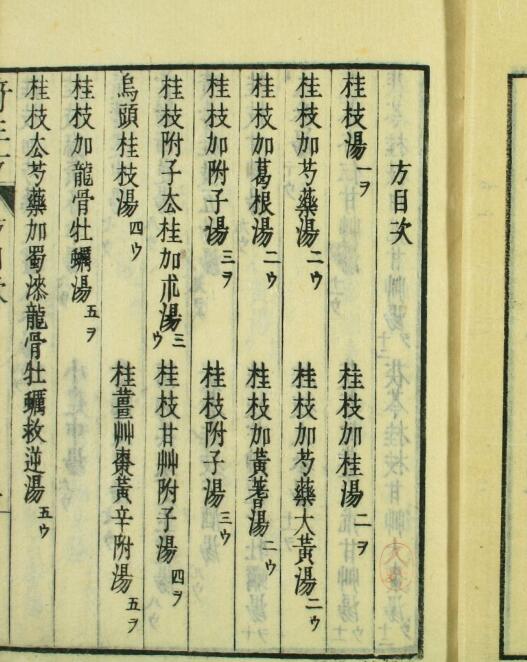 方目次
桂枝湯一ヲ
桂枝加桂湯二ヲ
桂枝加芍藥湯二ウ
桂枝加芍藥大黃湯二ウ
桂枝加葛根湯二ウ
桂枝加黃蓍湯二ウ
桂枝加附子湯三ヲ
桂枝附子湯三ウ
桂枝附子厺桂加朮湯三ウ
桂枝甘艸附子湯四ヲ
烏頭桂枝湯四ウ
桂薑艸棗黃辛附湯五ヲ
桂枝加龍骨牡蠣湯五ヲ
桂枝厺芍藥加蜀漆龍骨牡蠣救逆湯五ウ